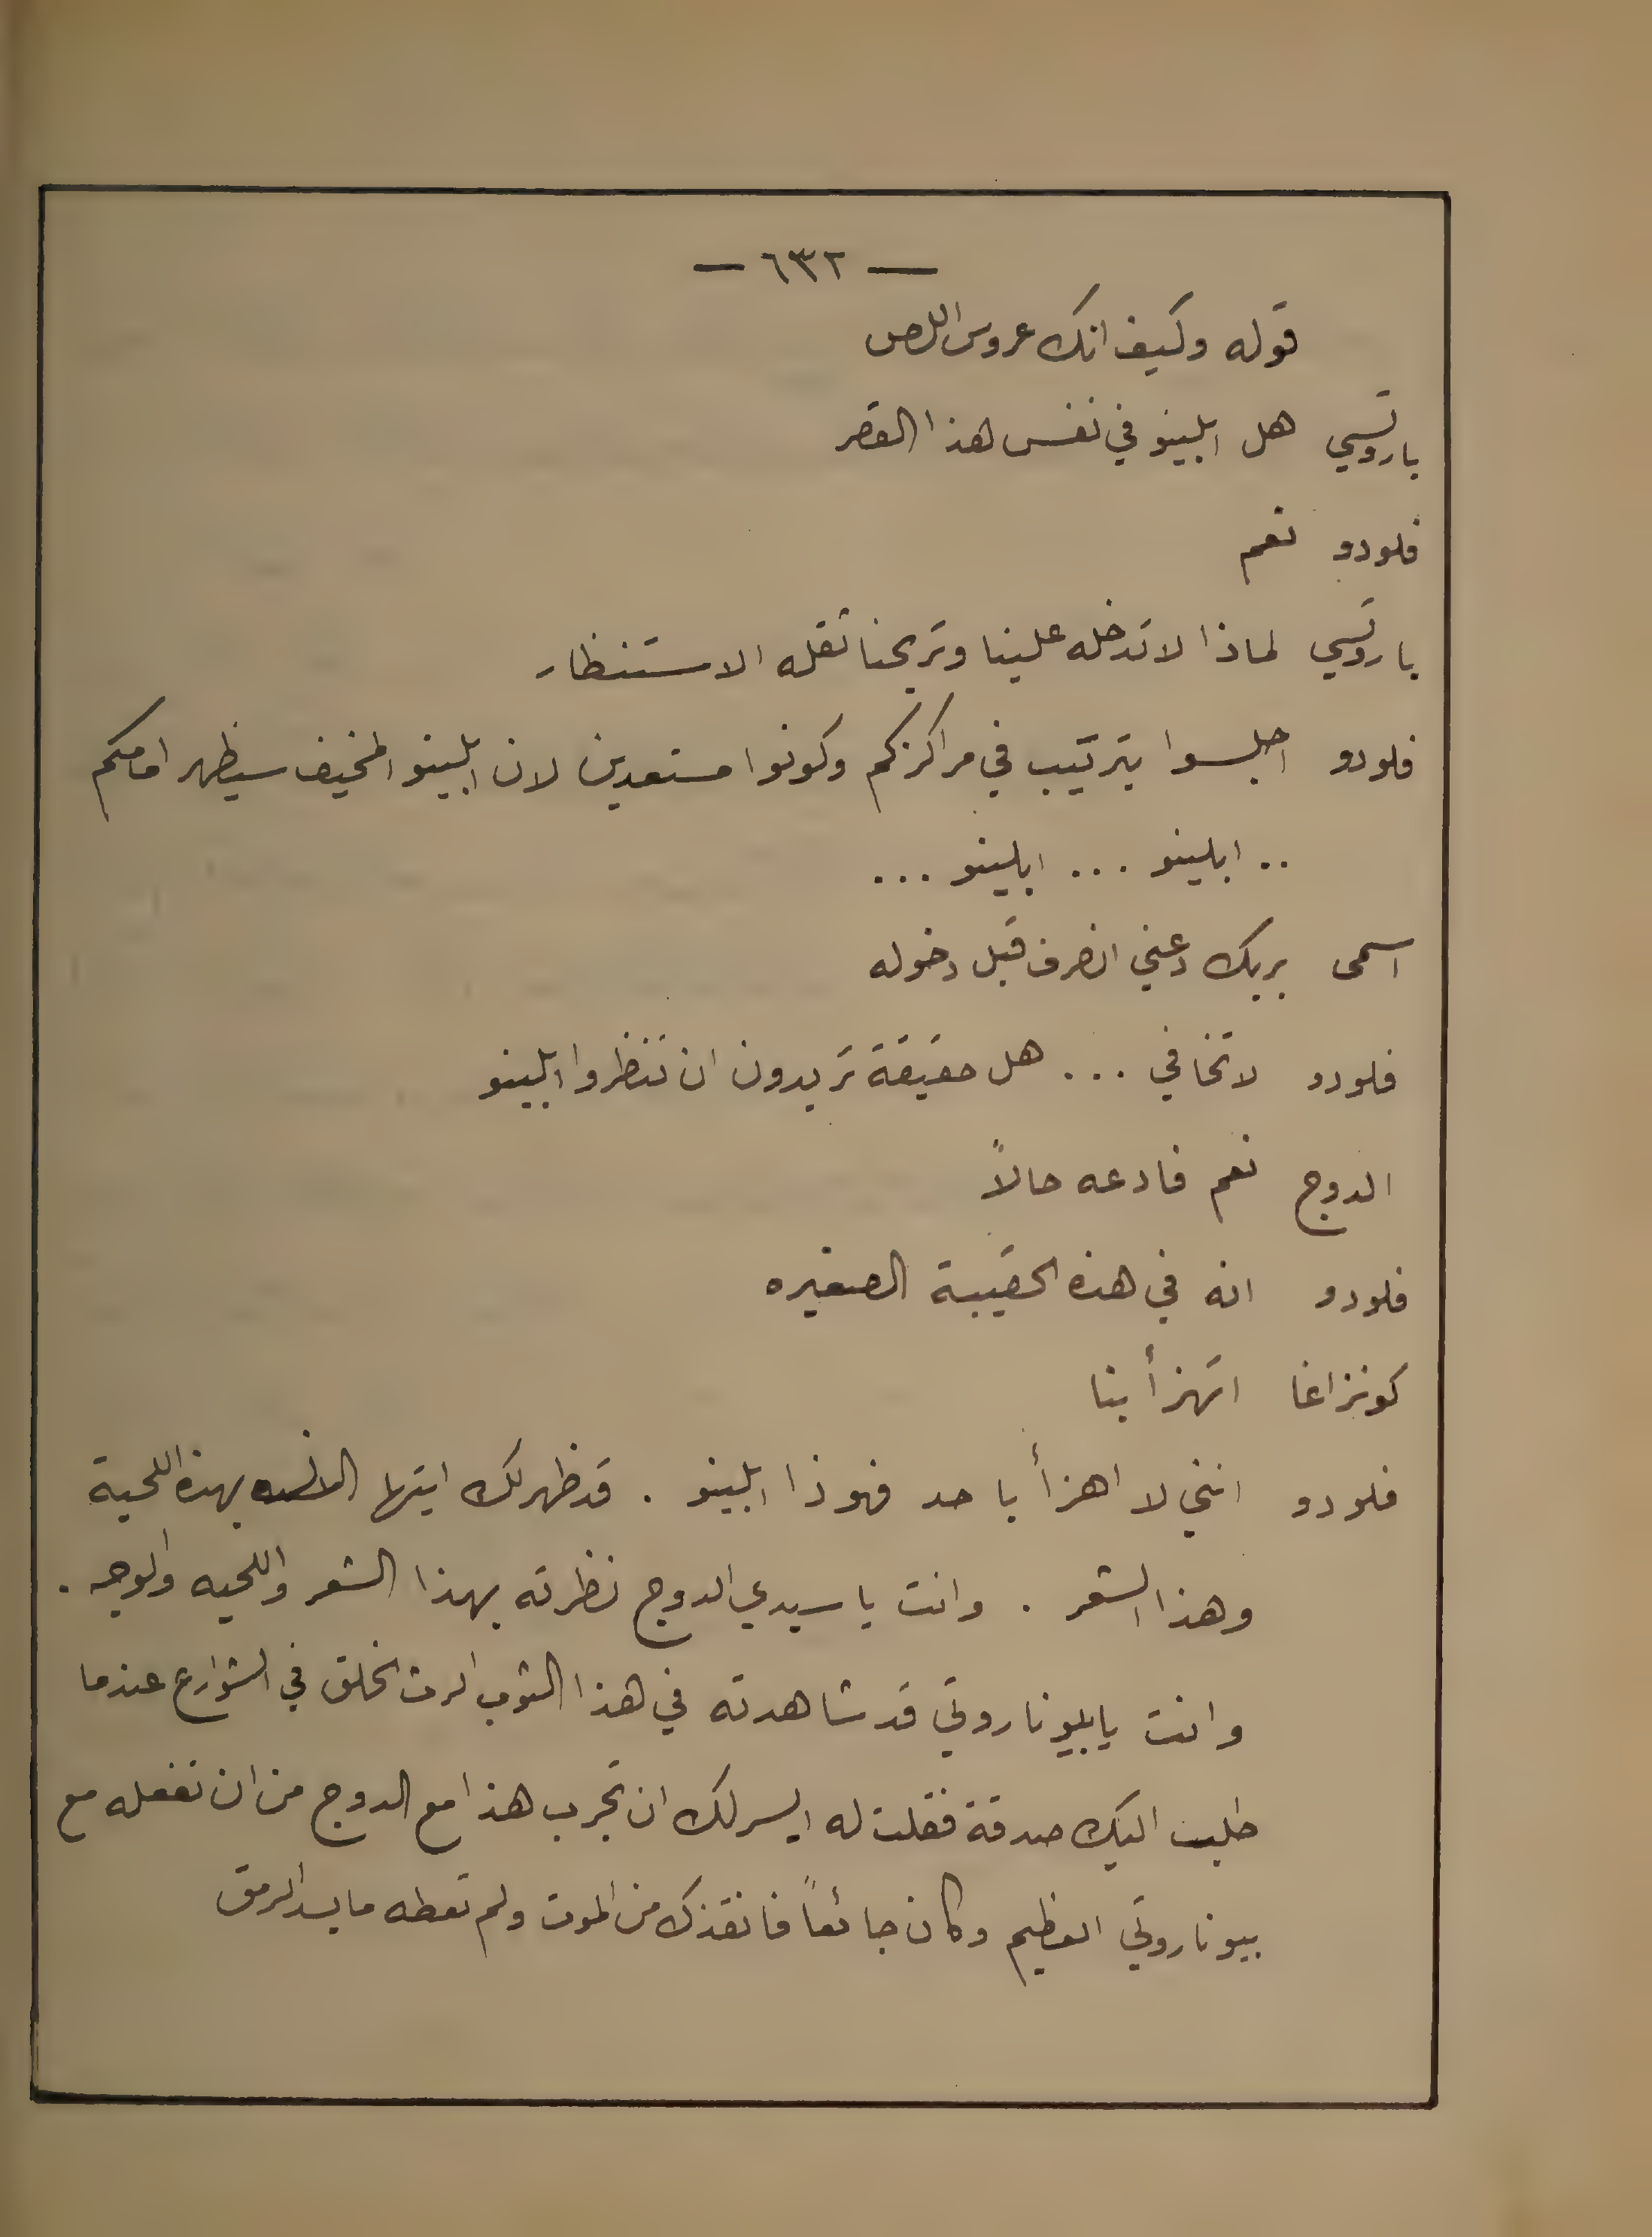 — ٦٣٢ —
قوله وكيف انك عروس اللص
باروتسي هل ابلينو في نفس هذا القصر
فلودو نعم
باروتسي لماذا لا تدخله علينا وتريحنا ثقله الاستنظار
فلودو اجلسوا بترتيب في مراكزكم وكونوا مستعدين لان ابلينو المخيف سيظهر امامكم
.. ابلينو ... ابلينو ...
اسمى بربك دعني انصرف قبل دخوله
فلودو لا تخافي ... هل حقيقة تريدون ان تنظروا ابلينو
الدوج نعم فادعه حالاً
فلودو انه في هذه الحقيبة الصغيره
كونزاغا اتهزأ بنا
فلودو انني لا اهزأ باحد فهوذا ابلينو . قد ظهر لك ايتها الانسه بهذه اللحية
وهذا الشعر . وانت يا سيدي الدوج نظرته بهذا الشعر واللحيه والوجه .
وانت يابيوناروتي قد شاهدته في هذا الثوب الرث الخلق في الشوارع عندما
طلب اليك صدقة فقلت له ايسر لك ان تجرب هذا مع الدوج من ان تفعله مع
بيوناروتي العظيم وكان جائعاً فانقذك من الموت ولم تعطه ما يسد الرمق